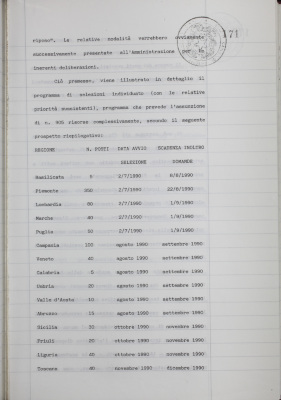 riposo". Le relative modalità verrebbero ovviamente
successivamente presentate all'Amministrazione per le
inerenti deliberazioni.
Ciò premesso, viene illustrato in dettaglio il
programma di selezioni individuato (con le relative
priorità sussistenti), programma che prevede l'assunzione
di n. 905 risorse complessivamente, secondo il seguente
prospetto riepilogativo:
REGIONE N. POSTI DATA AVVIO SCADENZA INOLTRO
SELEZIONE DOMANDE
Basilicata 2/7/1990 6/8/1990
Piemonte 2/7/1990 22/8/1990
Lombardia 2/7/1990 1/9/1990
Marche 2/7/1990 1/9/1990
Puglia 2/7/1990 1/9/1990
Campania agosto 1990 settembre 1990
Veneto 40 agosto 1990 settembre 1990
Calabria 5 agosto 1990 settembre 1990
Umbria 20 agosto 1990 settembre 1990
Valle d'Aosta 10 agosto 1990 settembre 1990
Abruzzo 15 agosto 1990 settembre 1990
Sicilia ottobre 1990 novembre 1990
Friuli 20 ottobre 1990 novembre 1990
Liguria 45 ottobre 1990 novembre 1990
Toscana novembre 1990 dicembre 1990
171